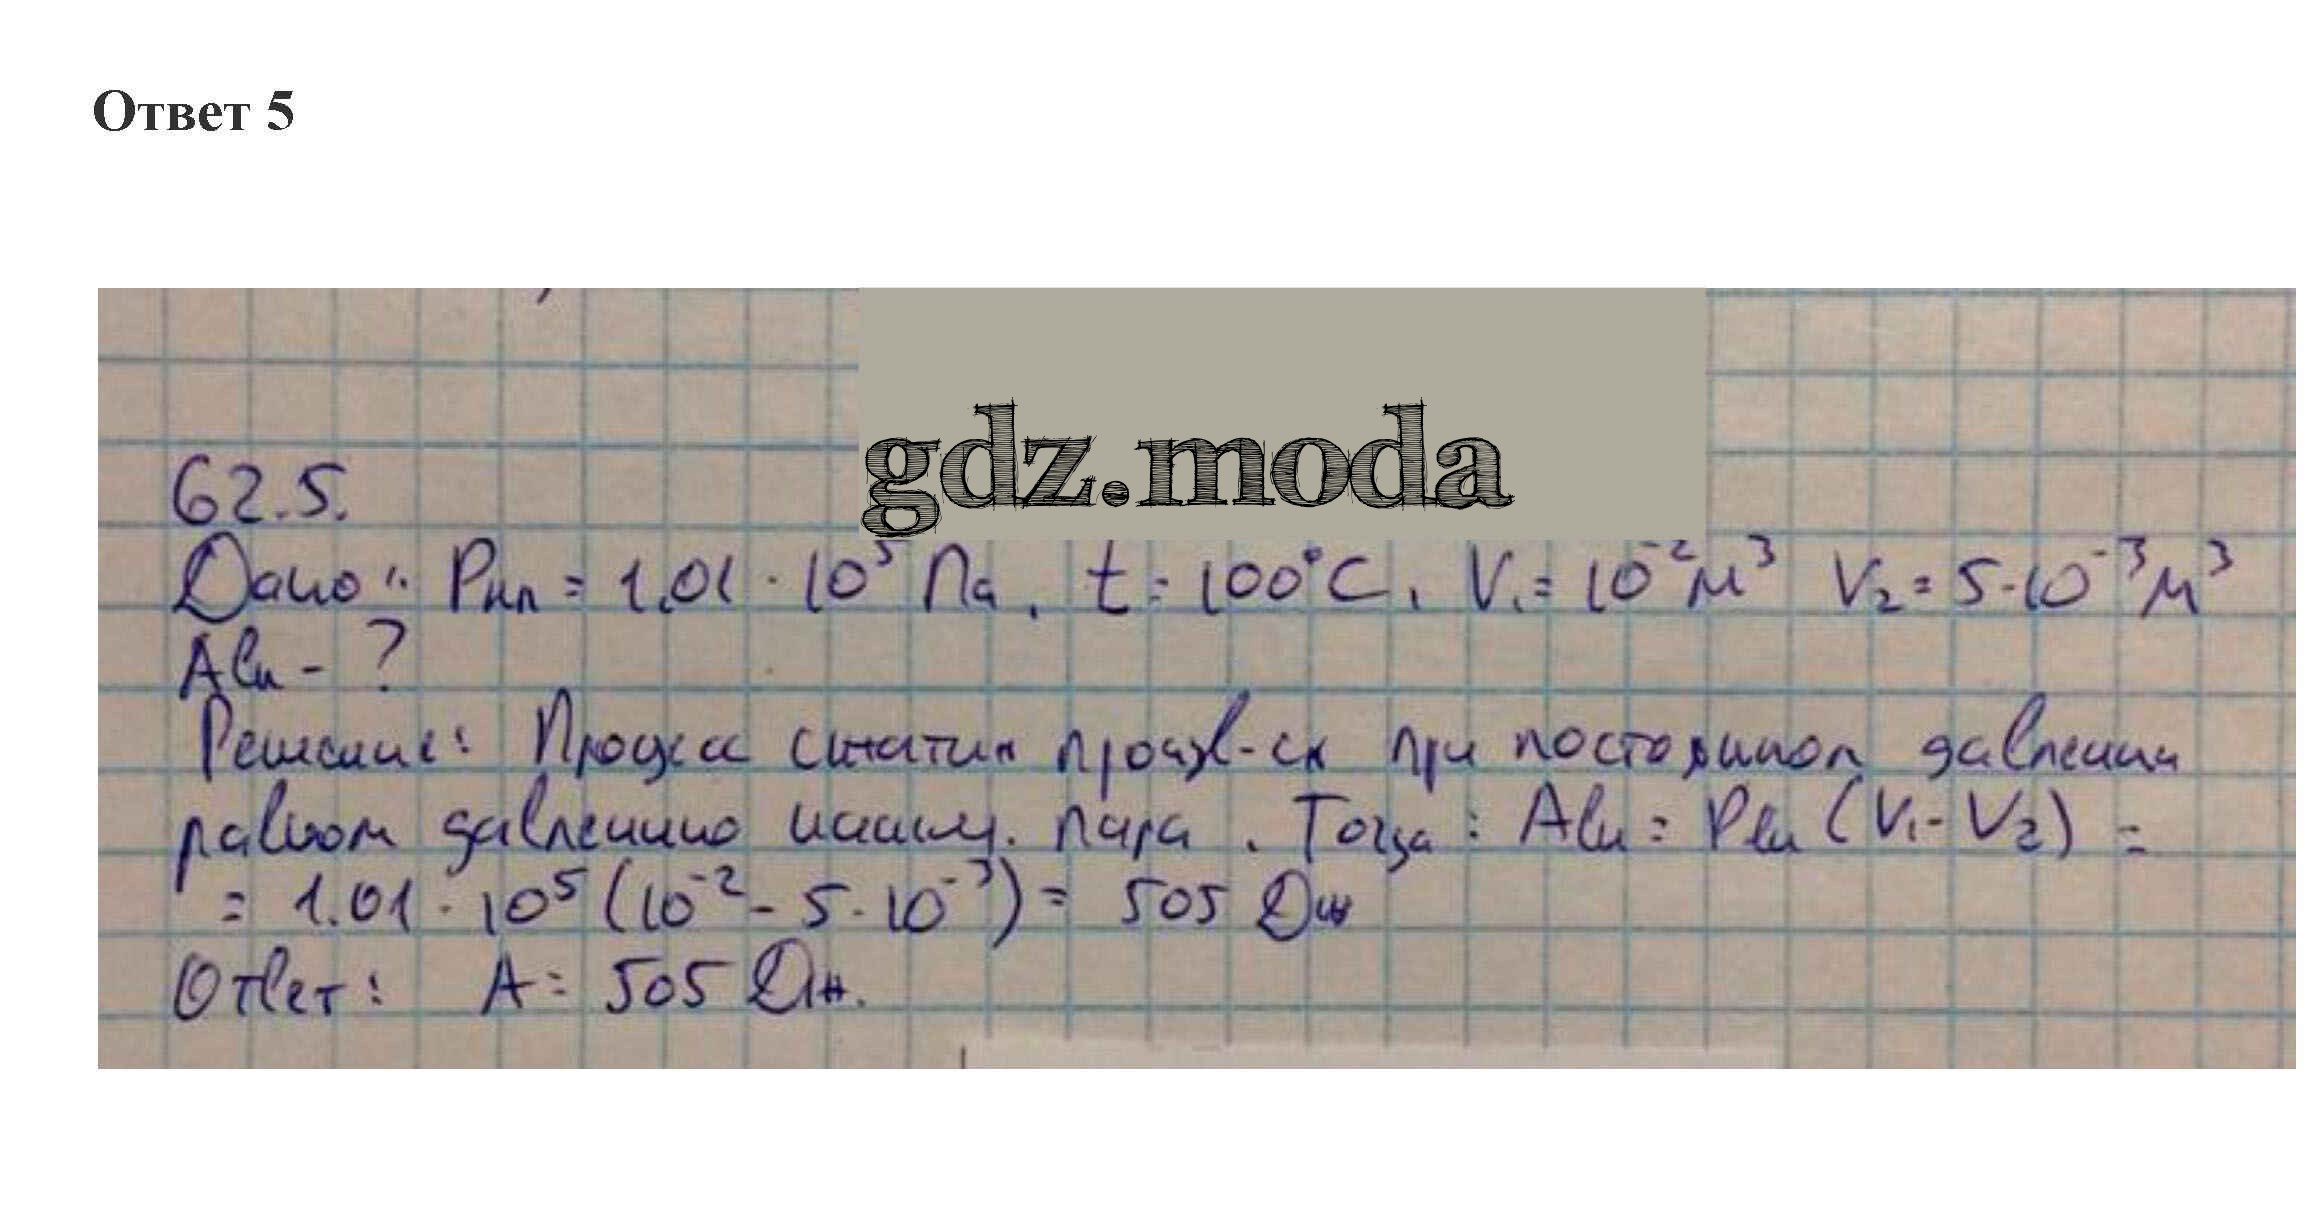 Ответ 5
gdz.moda
62.5.
Дано: Pнп = 1.01 · 10⁵ Па, t = 100°C, V₁ = 10⁻² м³ V₂ = 5·10⁻³ м³
Aвн - ?
Решение: Процесс сжатия произв-ся при постоянном давлении
равном давлению насыщ. пара. Тогда: Aвн = Pвн (V₁ - V₂) =
= 1.01 · 10⁵ (10⁻² - 5 · 10⁻³) = 505 Дж
Ответ: A = 505 Дж.